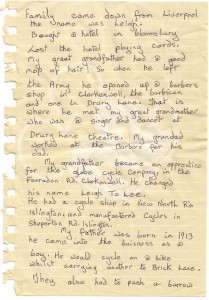 Family came down from Liverpool
the surname was Leigh.
Bought a hotel in bloomsbury
Lost the hotel playing cards.
My great grandfather had a good
mop of hair so when he left
the Army he opened up a barber's
shop in Clerkenwell, the barbican
and one in Drury Lane. That is
where he met my great grandmother
who was a singer and dancer at
Drury Lane theatre. My grandad
worked at the Barbers for his
dad.
My grandfather became an apprentice
for the globe cycle Company, in the
Farradon Rd, Clerkenwell. He changed
his name Leigh To Lee.
He had a cycle shop in New North Rd
Islington, and manufactored Cycles in
Sheperton Rd. Islington.
My father was born in 1913
he came into the buisness as a
boy. He would cycle on a bike
whilst carrying another to Brick Lane.
They also had to push a burrow